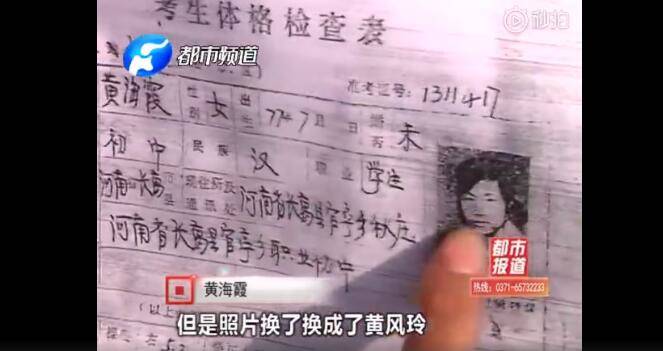 考生体格检查表
秒拍
都市频道
准考证号：1311417
黄海霞 性别 女 出生 77年7月 日 婚否 未
初中 民族 汉 职业 学生
河南 长葛 市县 现住所及通讯处 河南省长葛县官亭乡
河南省长葛县官亭乡职业
都市
报道
热线：0371-65732233
黄海霞
但是照片换了换成了黄风玲